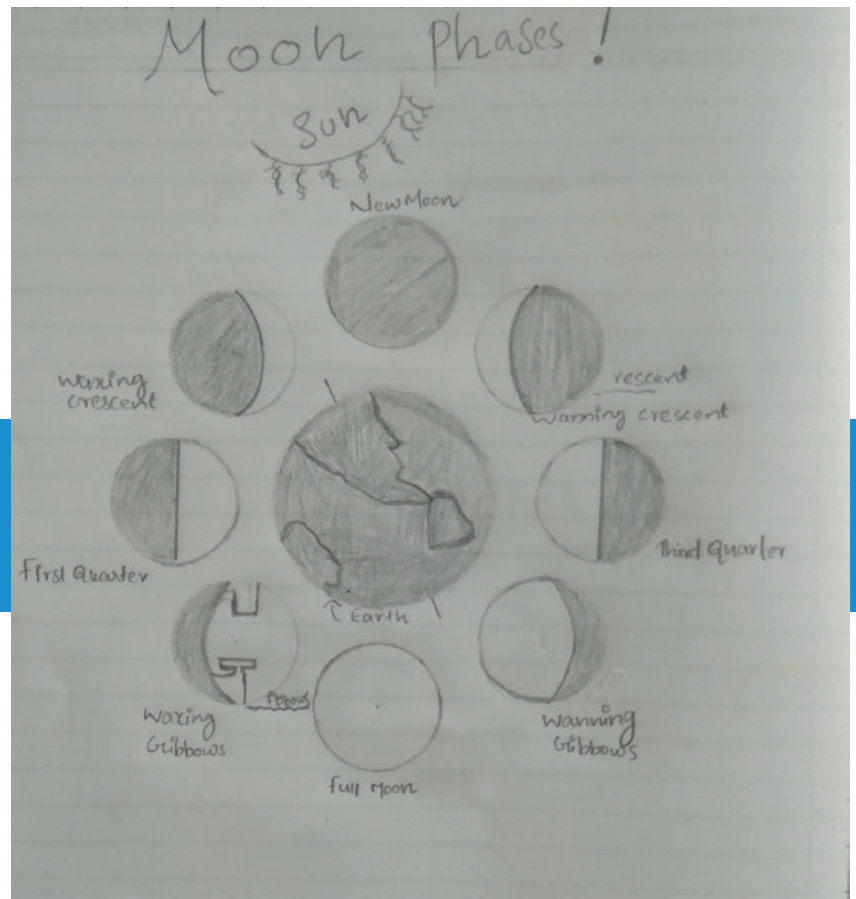 Moon Phases!
Sun
New Moon
Waxing
crescent
rescent
Wanning crescent
First Quarter
Third Quarter
Earth
Waxing
Gibbows
ibbows
Wanning
Gibbows
full Moon